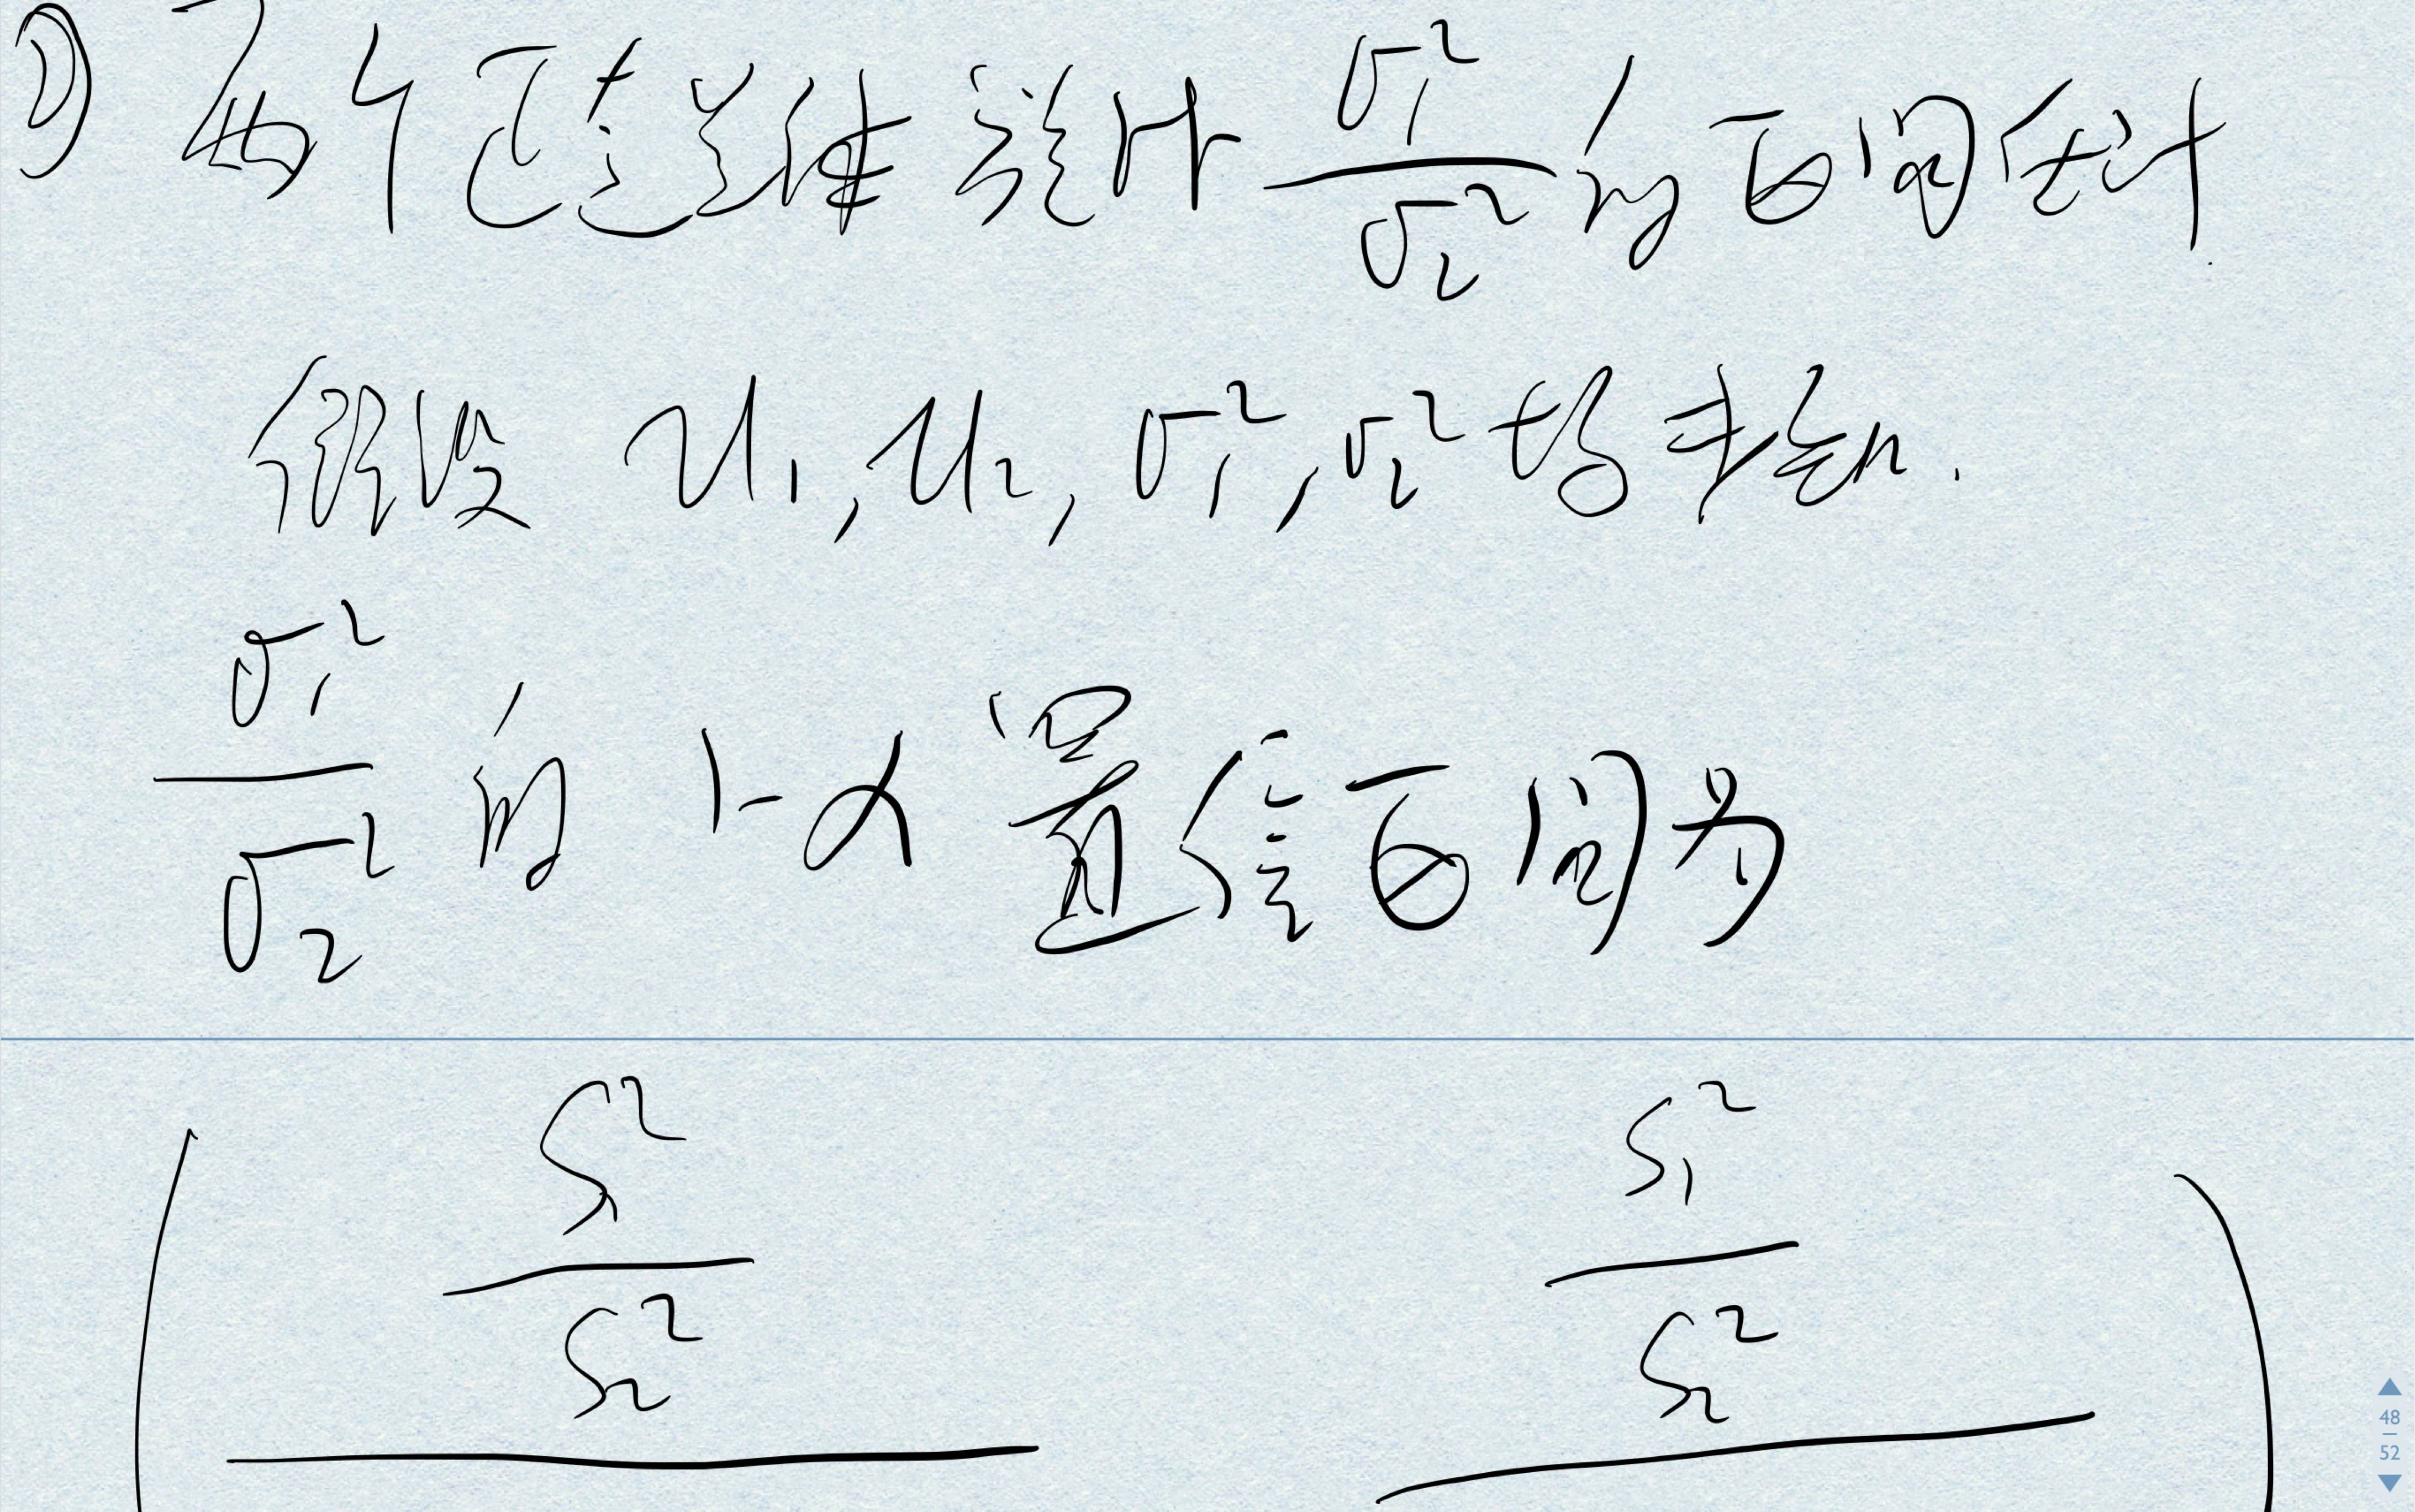 1) 两个正态总体方差比 σ₁²/σ₂² 的区间估计.
假设 μ₁, μ₂, σ₁², σ₂² 均未知.
σ₁²/σ₂² 的 1-α 置信区间为
( S₁²/S₂² S₁²/S₂² )
48
52